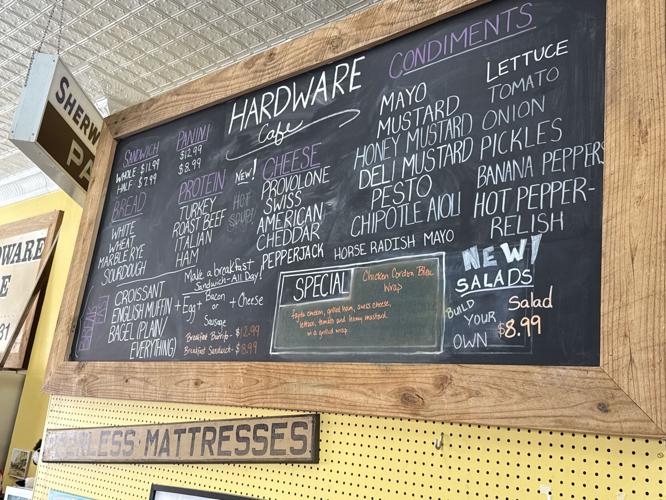 SHERW
PA
HARDWARE
Cafe
SANDWICH
WHOLE $11.99
HALF $7.99
PANINI
$12.99
$8.99
BREAD
WHITE
WHEAT
MARBLE RYE
SOURDOUGH
PROTEIN
TURKEY
ROAST BEEF
ITALIAN
HAM
NEW!
HOT
SOUP!
CHEESE
PROVOLONE
SWISS
AMERICAN
CHEDDAR
PEPPERJACK
CONDIMENTS
MAYO
MUSTARD
HONEY MUSTARD
DELI MUSTARD
PESTO
CHIPOTLE AIOLI
HORSE RADISH MAYO
LETTUCE
TOMATO
ONION
PICKLES
BANANA PEPPERS
HOT PEPPER-
RELISH
Make a breakfast
Sandwich-All Day!
CROISSANT
ENGLISH MUFFIN
BAGEL (PLAIN/
EVERYTHING)
+ Egg + Bacon
or
Sausage
+ Cheese
Breakfast Burrito - $12.99
Breakfast Sandwich - $8.99
SPECIAL
Chicken Cordon Bleu
Wrap
fajita chicken, grilled ham, swiss cheese,
lettuce, tomato and honey mustard
in a grilled wrap
NEW!
SALADS
BUILD
YOUR
OWN
Salad
$8.99
DWARE
E
31
RLESS·MATTRESSES